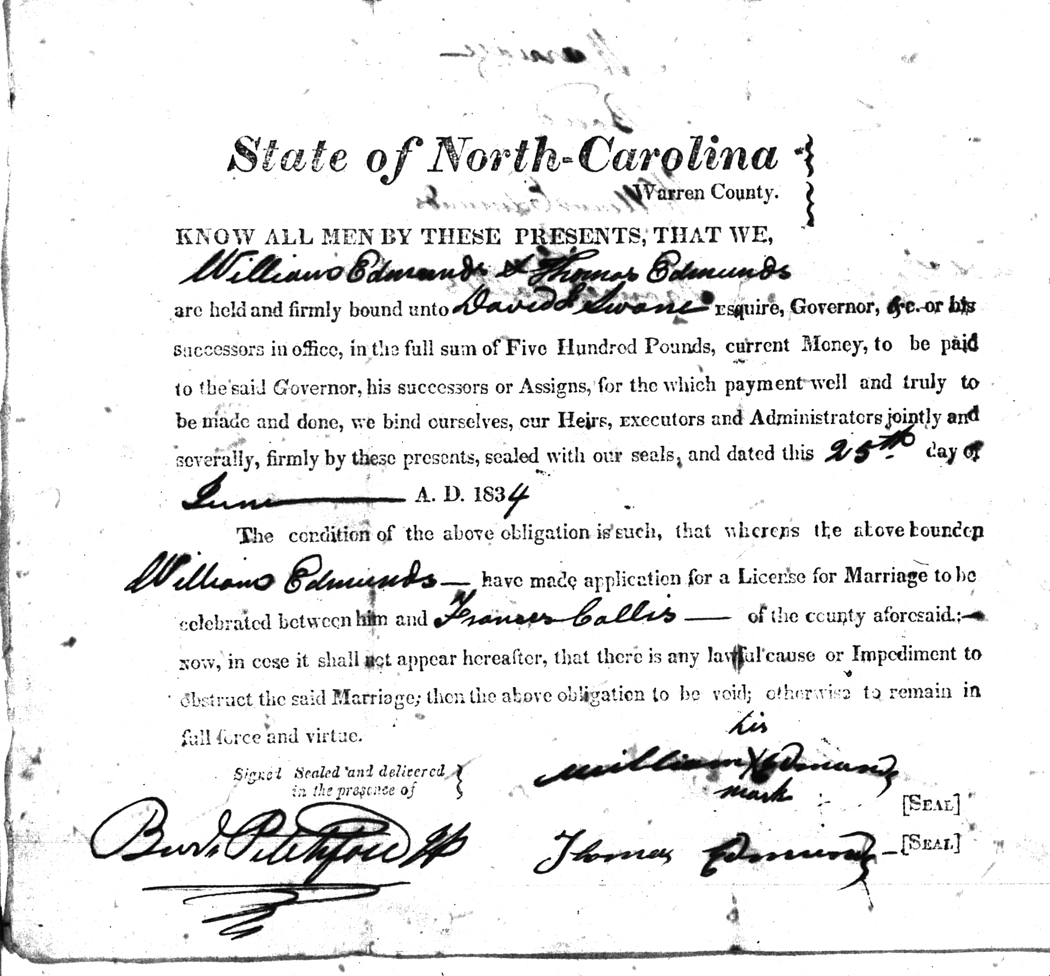 State of North-Carolina
Warren County.
KNOW ALL MEN BY THESE PRESENTS, THAT WE,
William Edmunds & Thomas Edmunds
are held and firmly bound unto David L Swane Esquire, Governor, &c. or his
successors in office, in the full sum of Five Hundred Pounds, current Money, to be paid
to the said Governor, his successors or Assigns, for the which payment well and truly to
be made and done, we bind ourselves, our Heirs, Executors and Administrators jointly and
severally, firmly by these presents, sealed with our seals, and dated this 25th day of
June A. D. 1834
The condition of the above obligation is such, that whereas the above bounden
William Edmunds have made application for a License for Marriage to be
celebrated between him and Frances Collis of the county aforesaid:
now, in case it shall not appear hereafter, that there is any lawful cause or Impediment to
obstruct the said Marriage; then the above obligation to be void; otherwise to remain in
full force and virtue.
his
Signed Sealed and delivered
in the presence of
William X Edmunds
mark
[SEAL]
Thomas Edmunds [SEAL]